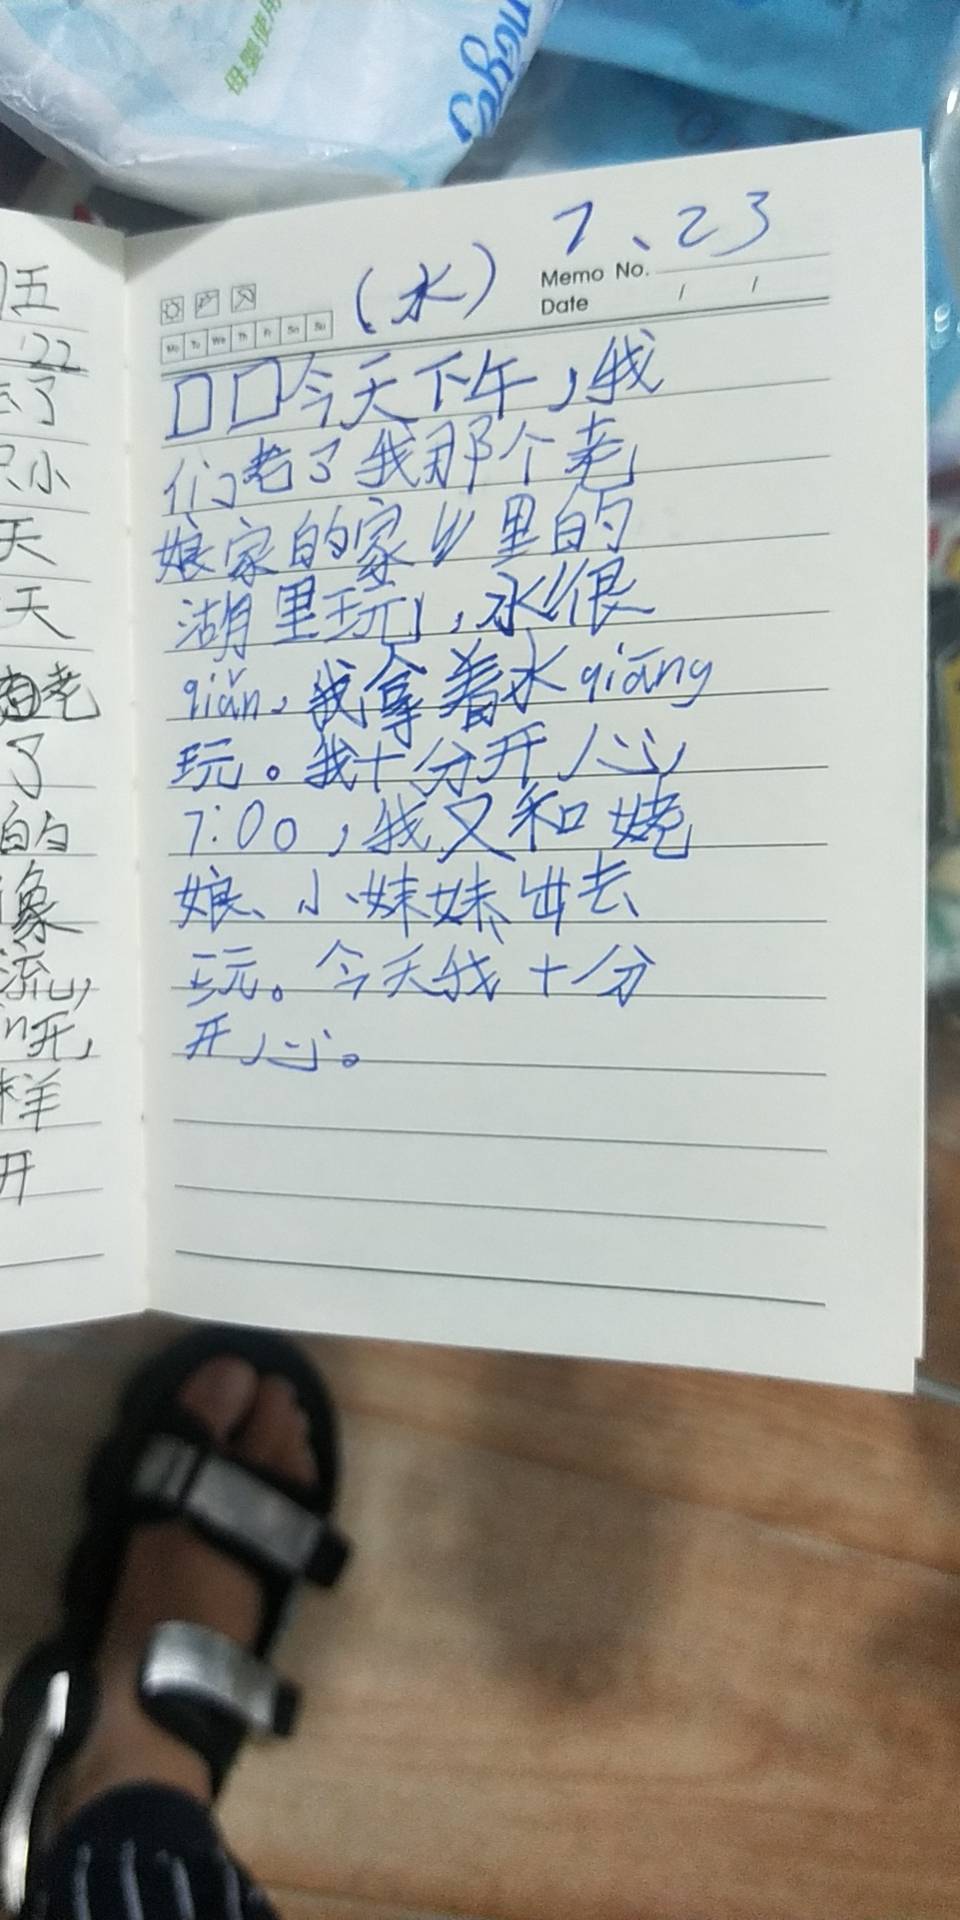 母婴使用
7、23
(水)
Memo No.
Date / /
Mo Tu We Th Fr Sa Su
口口今天下午,我
们老了我那个老
娘家的家乡里的
湖里玩,水很
qiǎn、我拿着水qiāng
玩。我十分开心
7:00,我又和姥
娘、小妹妹出去
玩。今天我十分
开心。
五
'22
去了
只小
天
天
老
了
的
像
流,
开,
样
开